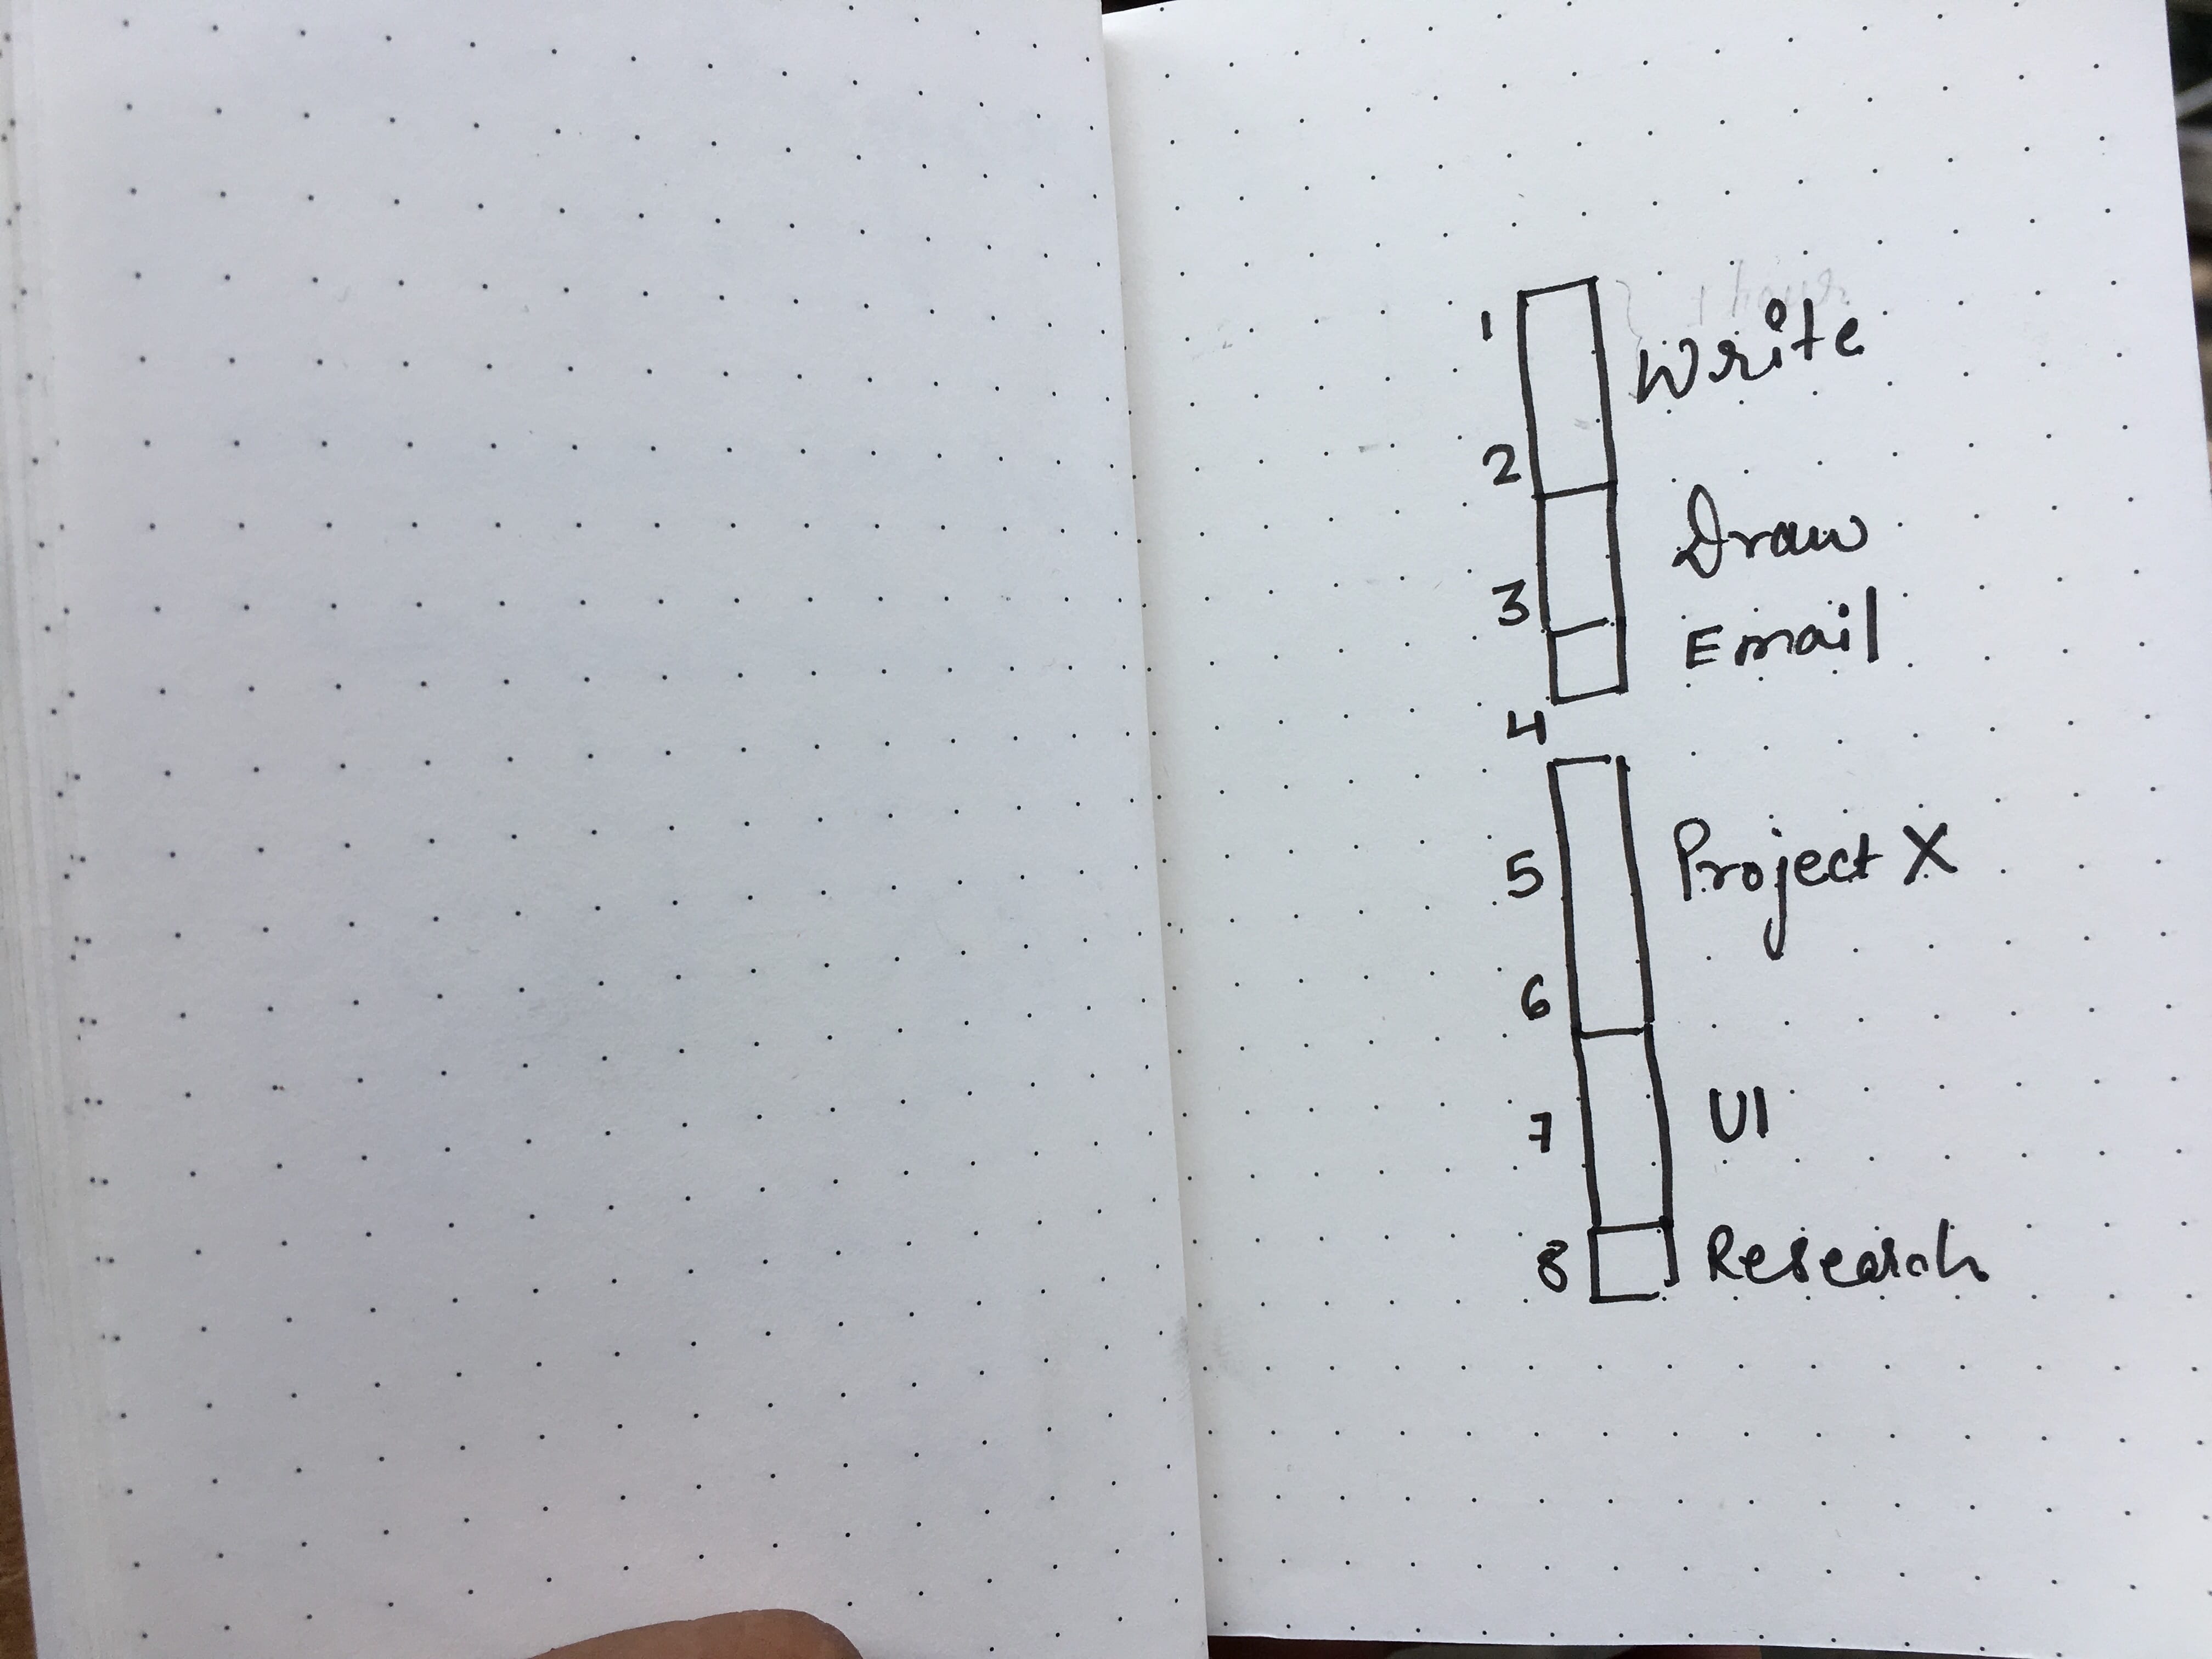 1 Write
2
Draw
3 Email
4
5 Project X
6
7 UI
8 Research